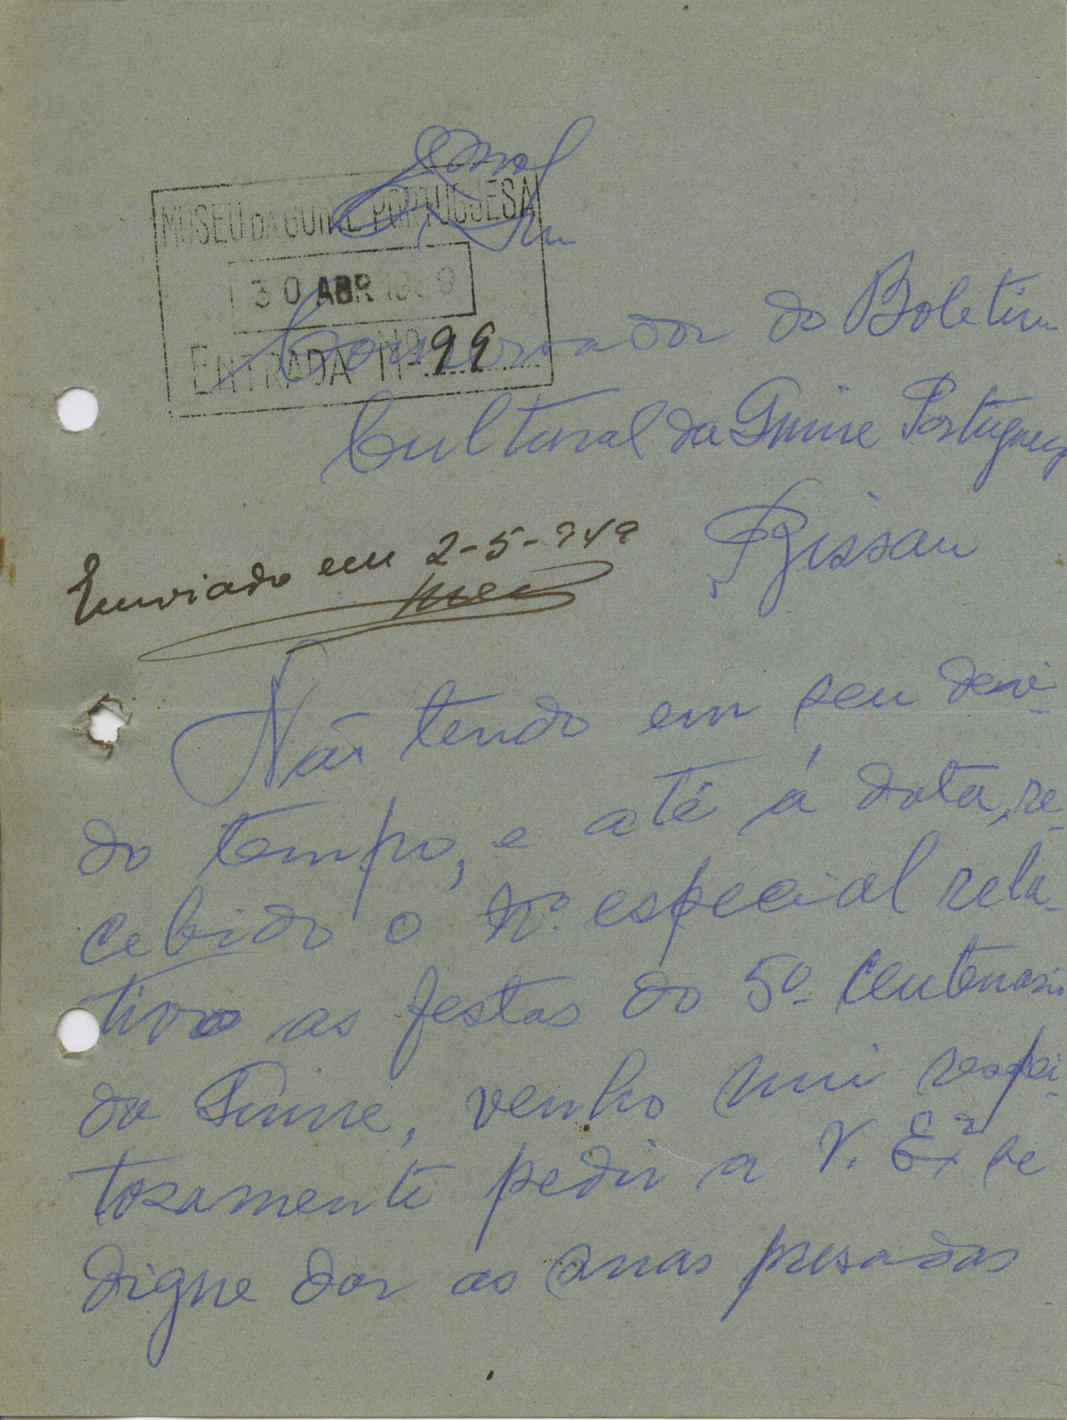 Exmo
Snr.
MUSEU DA GUINÉ PORTUGUESA
30 ABR 1949
ENTRADA Nº 99
Conservador do Boletim
Cultural da Guine Portugueza
Bissau
Enviado em 2-5-949
Não tendo em seu devi-
do tempo, e até á data, re-
cebido o nº. especial rela-
tivo as festas do 5º centenario
da Guine, venho mui respei-
tosamente pedir a V. Exª se
digne dar as suas presadas